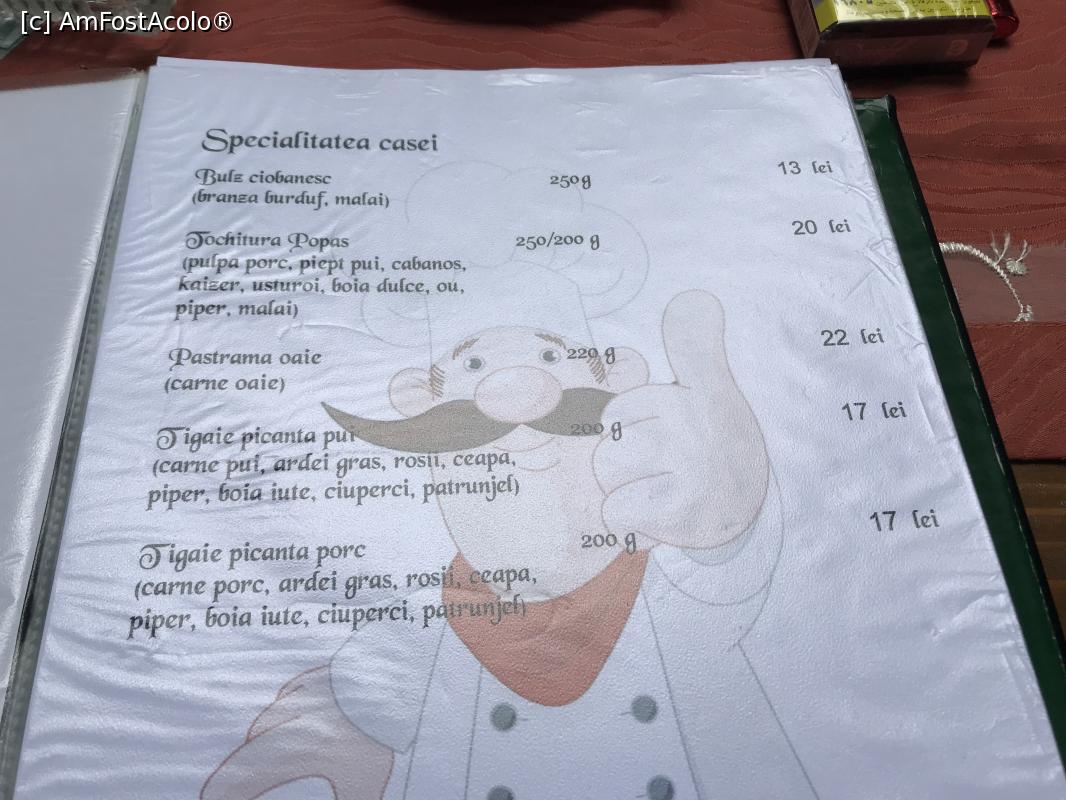 [c] AmFostAcolo®
Specialitatea casei
Bulz ciobanesc 250g 13 lei
(branza burduf, malai)
Tochitura Popas 250/200 g 20 lei
(pulpa porc, piept pui, cabanos,
kaizer, usturoi, boia dulce, ou,
piper, malai)
Pastrama oaie 220 g 22 lei
(carne oaie)
Tigaie picanta pui 200 g 17 lei
(carne pui, ardei gras, rosii, ceapa,
piper, boia iute, ciuperci, patrunjel)
Tigaie picanta porc 200 g 17 lei
(carne porc, ardei gras, rosii, ceapa,
piper, boia iute, ciuperci, patrunjel)